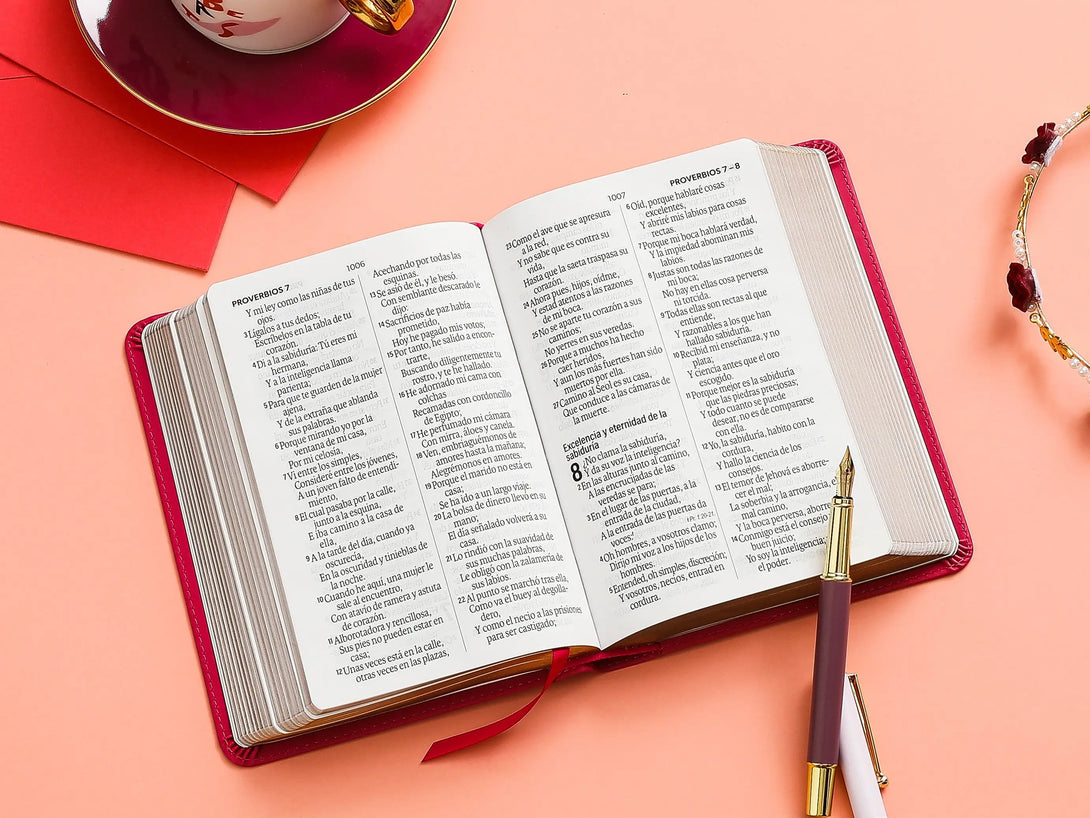 1006
PROVERBIOS 7
Y mi ley como las niñas de tus
ojos.
3 Lígalos a tus dedos;
Escríbelos en la tabla de tu
corazón.
4 Di a la sabiduría: Tú eres mi
hermana,
Y a la inteligencia llama
parienta;
5 Para que te guarden de la mujer
ajena,
Y de la extraña que ablanda
sus palabras.
6 Porque mirando yo por la
ventana de mi casa,
Por mi celosía,
7 Vi entre los simples,
Consideré entre los jóvenes,
A un joven falto de entendi-
miento,
8 El cual pasaba por la calle,
junto a la esquina,
E iba camino a la casa de
ella,
9 A la tarde del día, cuando ya
oscurecía,
En la oscuridad y tinieblas de
la noche.
10 Cuando he aquí, una mujer le
sale al encuentro,
Con atavío de ramera y astuta
de corazón.
11 Alborotadora y rencillosa,
Sus pies no pueden estar en
casa;
12 Unas veces está en la calle,
otras veces en las plazas,
Acechando por todas las
esquinas.
13 Se asió de él, y le besó.
Con semblante descarado le
dijo:
14 Sacrificios de paz había
prometido,
Hoy he pagado mis votos;
15 Por tanto, he salido a encon-
trarte,
Buscando diligentemente tu
rostro, y te he hallado.
16 He adornado mi cama con
colchas
Recamadas con cordoncillo
de Egipto;
17 He perfumado mi cámara
Con mirra, áloes y canela.
18 Ven, embriaguémonos de
amores hasta la mañana;
Alegrémonos en amores.
19 Porque el marido no está en
casa;
Se ha ido a un largo viaje.
20 La bolsa de dinero llevó en su
mano;
El día señalado volverá a su
casa.
21 Lo rindió con la suavidad de
sus muchas palabras,
Le obligó con la zalamería de
sus labios.
22 Al punto se marchó tras ella,
Como va el buey al degolla-
dero,
Y como el necio a las prisiones
para ser castigado;
1007
PROVERBIOS 7–8
23 Como el ave que se apresura
a la red,
Y no sabe que es contra su
vida,
Hasta que la saeta traspasa su
corazón.
24 Ahora pues, hijos, oídme,
Y estad atentos a las razones
de mi boca.
25 No se aparte tu corazón a sus
caminos;
No yerres en sus veredas.
26 Porque a muchos ha hecho
caer heridos,
Y aun los más fuertes han sido
muertos por ella.
27 Camino al Seol es su casa,
Que conduce a las cámaras de
la muerte.
Excelencia y eternidad de la
sabiduría
8 ¿No clama la sabiduría,
Y da su voz la inteligencia?
2 En las alturas junto al camino,
A las encrucijadas de las
veredas se para;
3 En el lugar de las puertas, a la
entrada de la ciudad,
A la entrada de las puertas da
voces:
4 Oh hombres, a vosotros clamo;
Dirijo mi voz a los hijos de los
hombres.
5 Entended, oh simples, discreción;
Y vosotros, necios, entrad en
cordura.
6 Oíd, porque hablaré cosas
excelentes,
Y abriré mis labios para cosas
rectas.
7 Porque mi boca hablará verdad,
Y la impiedad abominan mis
labios.
8 Justas son todas las razones de
mi boca;
No hay en ellas cosa perversa
ni torcida.
9 Todas ellas son rectas al que
entiende,
Y razonables a los que han
hallado sabiduría.
10 Recibid mi enseñanza, y no
plata;
Y ciencia antes que el oro
escogido.
11 Porque mejor es la sabiduría
que las piedras preciosas;
Y todo cuanto se puede
desear, no es de compararse
con ella.
12 Yo, la sabiduría, habito con la
cordura,
Y hallo la ciencia de los
consejos.
13 El temor de Jehová es aborre-
cer el mal;
La soberbia y la arrogancia, e
mal camino,
Y la boca perversa, aborre
14 Conmigo está el consejo
buen juicio;
Yo soy la inteligencia;
el poder.